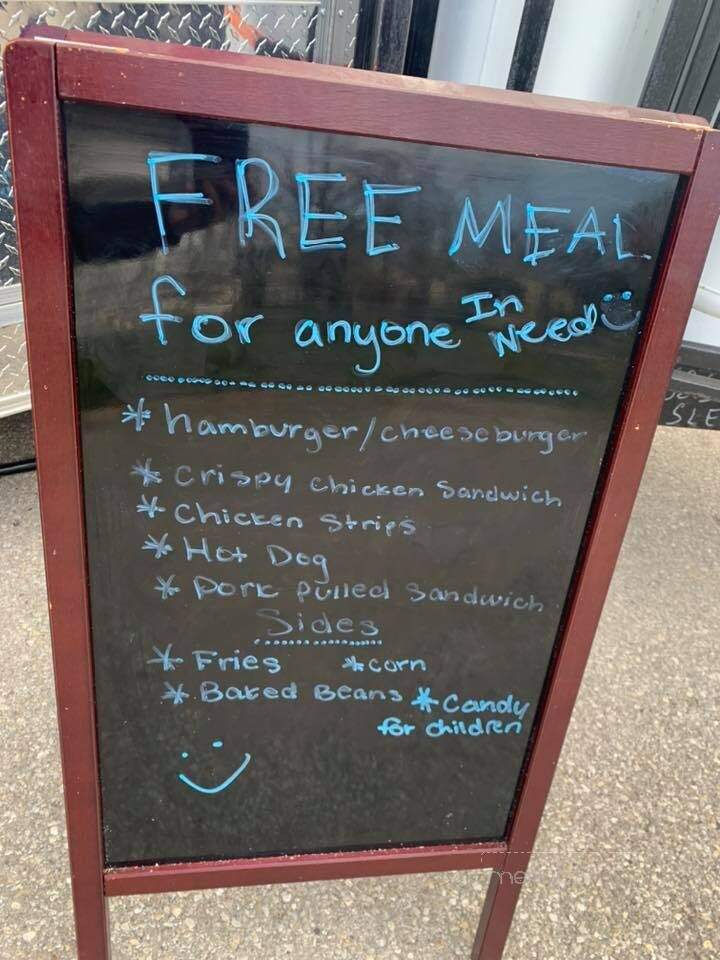 FREE MEAL
for anyone In Need
* hamburger/cheeseburger
* Crispy Chicken Sandwich
* Chicken Strips
* Hot Dog
* Pork Pulled Sandwich
Sides
* Fries * corn
* Baked Beans * Candy
for children